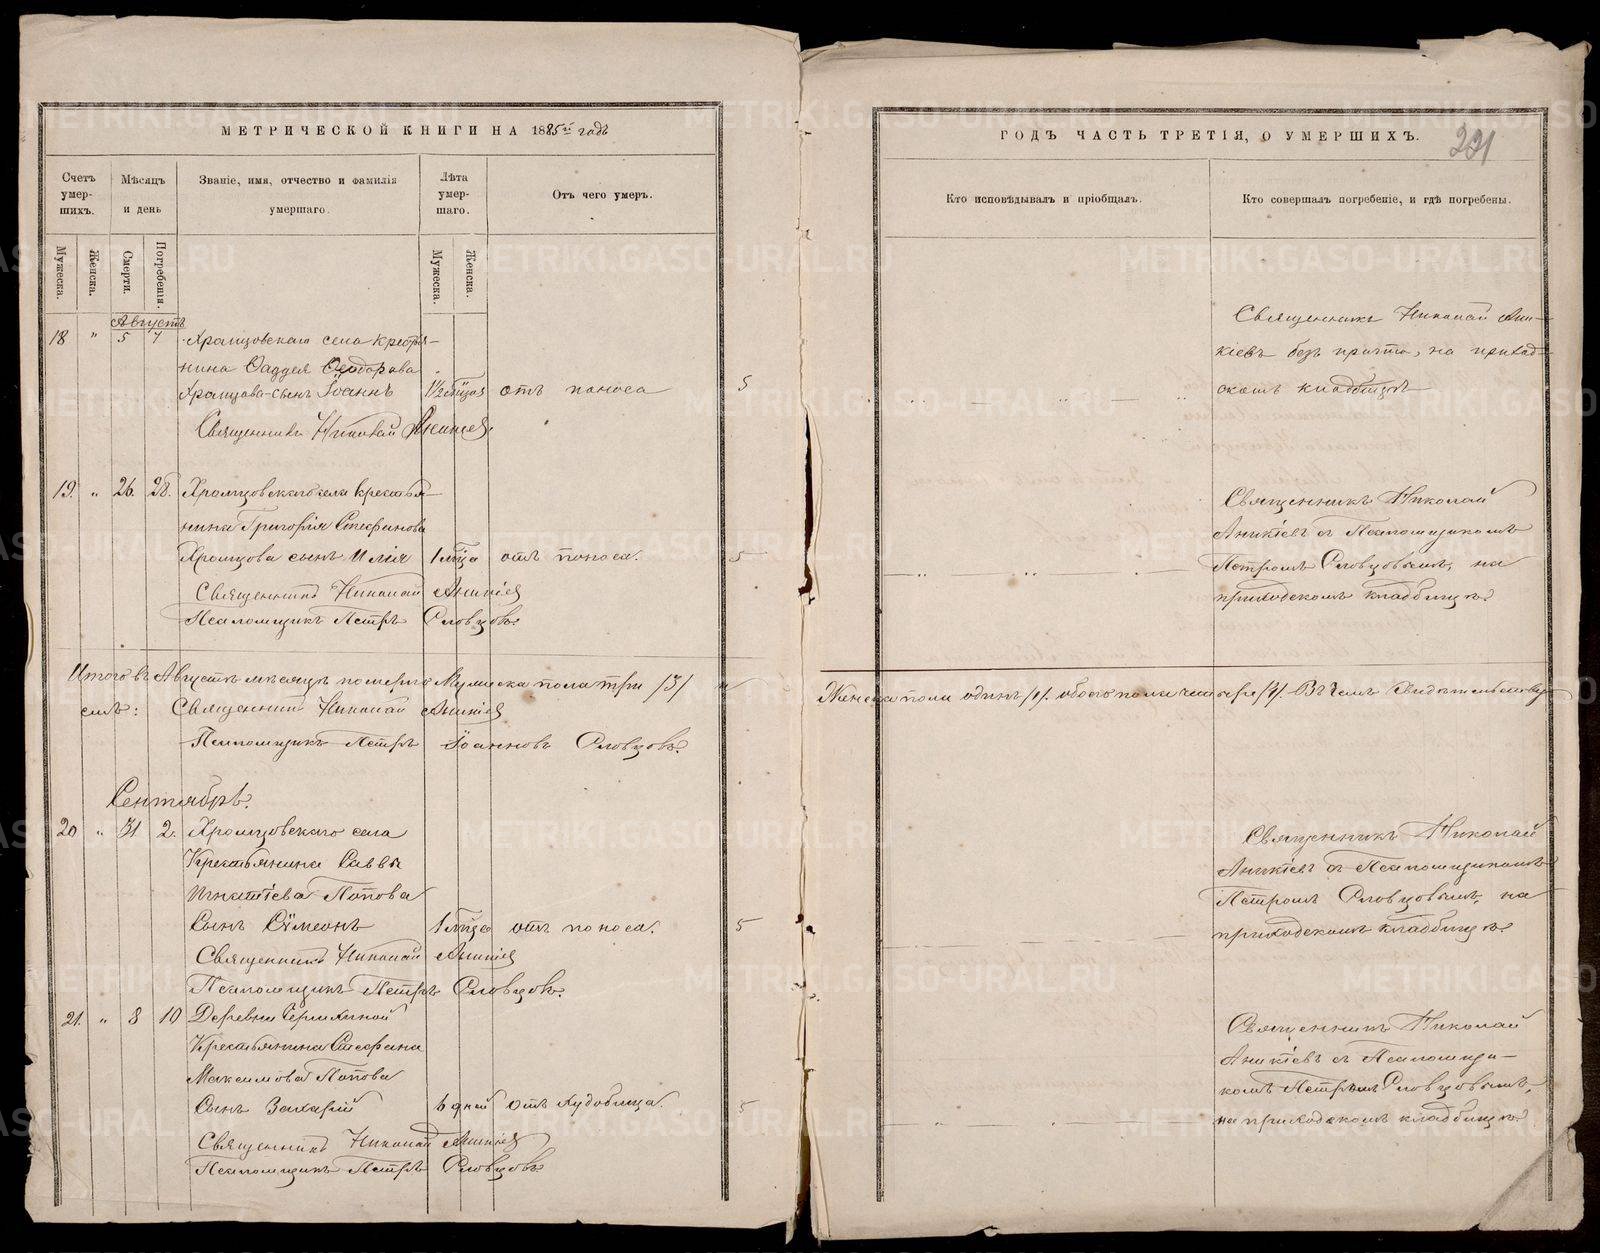 МЕТРИЧЕСКОЙ КНИГИ НА 1885й годъ
Счетъ умер-шихъ.
Мѣсяцъ и день
Званіе, имя, отчество и фамилія умершаго.
Лѣта умер-шаго.
Отъ чего умеръ.
Мужеска.
Женска.
Смерти.
Погребенія.
Мужеска.
Женска.
Августъ
18 " 5 7 Храмцовскаго села крестья-
нина Фаддея Ѳеодорова
Храмцова сынъ Іоаннъ 1½ мѣсяца отъ поноса 5
Священникъ Николай Аникіев
19. " 26. 28. Храмцовскаго села крестья-
нина Григорія Стефанова
Храмцова сынъ Илія 1 мѣца отъ поноса. 5
Священникъ Николай Аникіев
Псаломщикъ Петръ Словцовъ.
Итого въ Августѣ мѣсяцѣ померло Мужеска пола три /3/ и
емъ: Священник Николай Аникіев
Псаломщикъ Петръ Іоанновъ Словцовъ.
Сентябрь.
20 " 31 2. Храмцовскаго села
Крестьянина Саввы
Игнатіева Попова
Сынъ Сѵмеонъ 1 мѣца отъ поноса. 5
Священникъ Николай Аникіев
Псаломщикъ Петръ Словцовъ.
21. " 8 10 Деревни
Крестьянина Стефана
Максимова Попова
Сынъ Захарій 6 дней отъ худобища. 5
Священникъ Николай Аникіев
Псаломщикъ Петръ Словцовъ
ГОДЪ ЧАСТЬ ТРЕТІЯ, О УМЕРШИХЪ.
221
Кто исповѣдывалъ и пріобщалъ.
Кто совершалъ погребеніе, и гдѣ погребены.
Священникъ Николай Ани-
кіевъ безъ причта, на приход-
скомъ кладбищѣ
Священникъ Николай
Аникіевъ съ Псаломщикомъ
Петромъ Словцовымъ, на
приходскомъ кладбищѣ.
Женска пола одинъ /1/. обоего пола четыре /4/. Въ чемъ Свидѣтельствуу
Священникъ Николай
Аникіевъ съ Псаломщикомъ
Петромъ Словцовымъ, на
приходскомъ кладбищѣ.
Священникъ Николай
Аникіевъ съ Псаломщи-
комъ Петромъ Словцовымъ,
на приходскомъ кладбищѣ.
METRIKI.GASO-URAL.RU